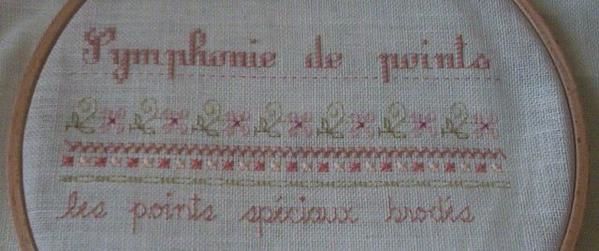 Symphonie de points
les points spéciaux brodés